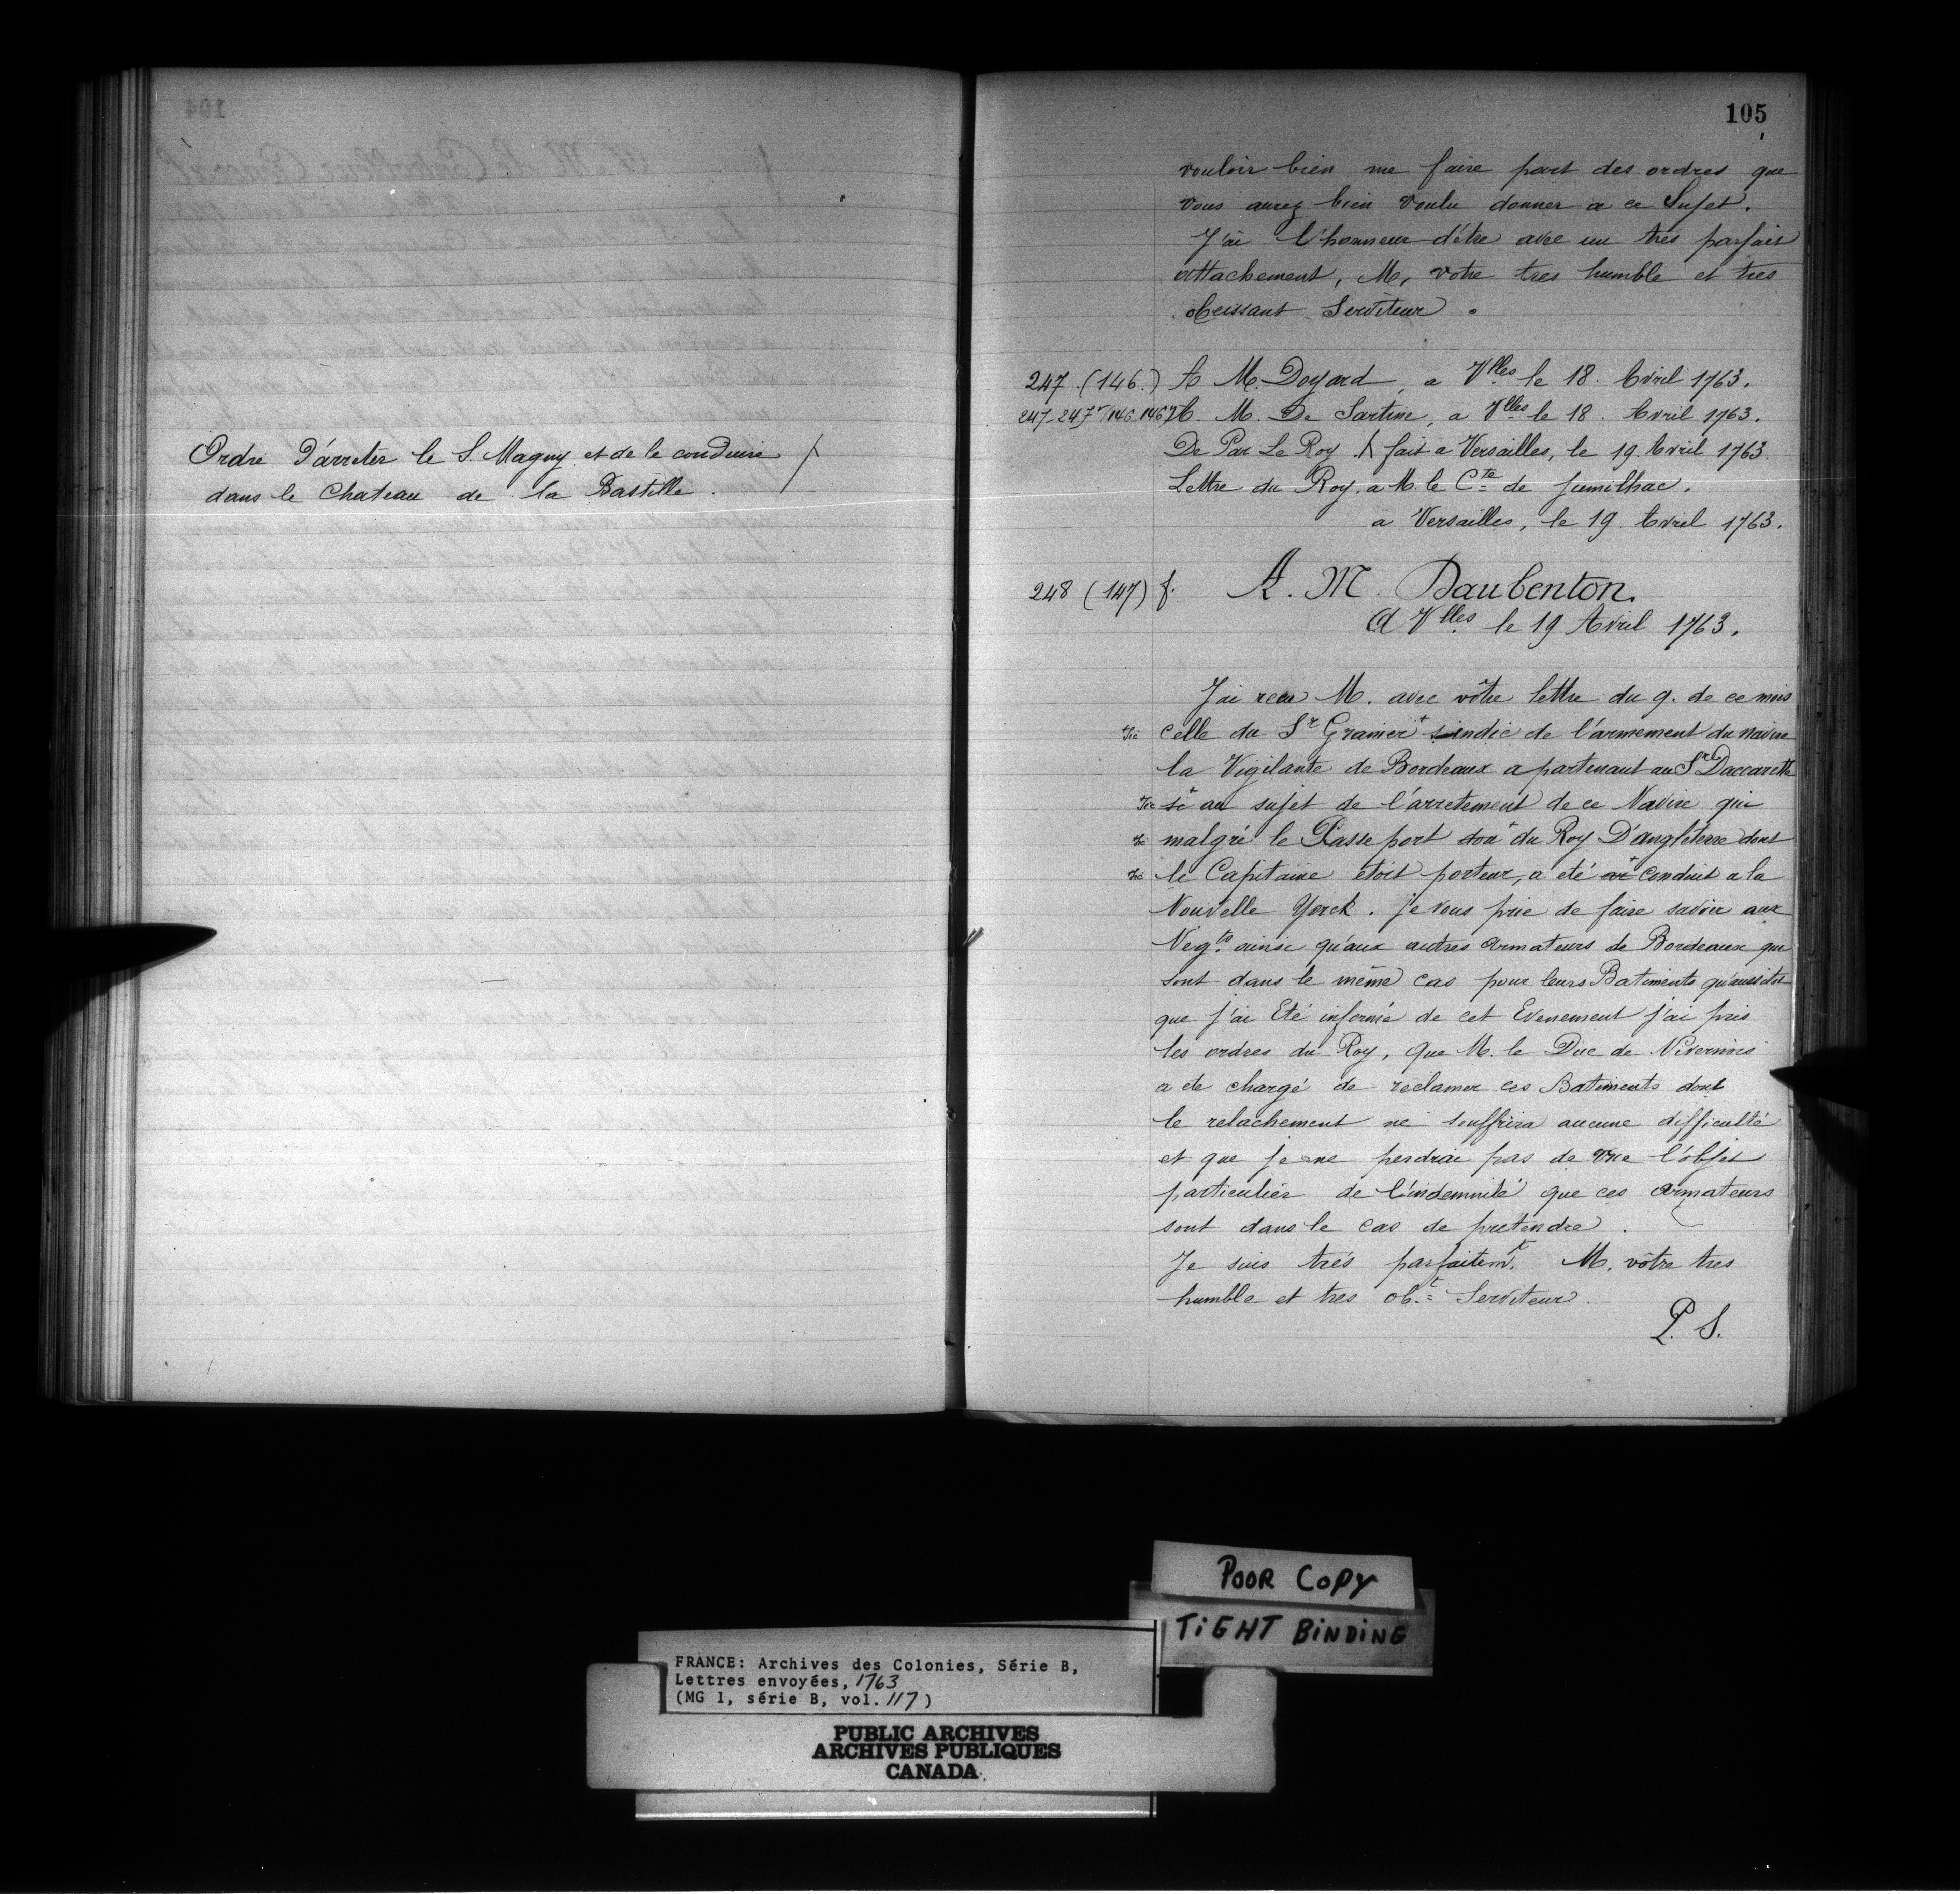 Ordre D'arreter le S. Magny et de le conduire
dans le Chateau de la Bastille.
105
vouloir bien me faire part des ordres que
vous aurez bien voulu donner a ce Sujet.
J'ai l'honneur d'être avec un tres parfait
attachement, M, votre tres humble et tres
obeissant Serviteur.
247 (146.) A M. Doyard, a Vlles le 18. Avril 1763.
247-247v (146-146v) A. M. De Sartine, a Vlles le 18. Avril 1763.
De Par Le Roy fait a Versailles, le 19 Avril 1763.
Lettre du Roy a M. le Cte de Jumilhac.
a Versailles, le 19 Avril 1763.
248 (147) f. A. M. Daubenton.
A Vlles le 19 Avril 1763.
J'ai recu M. avec vôtre lettre du 9. de ce mois
+sic celle du Sr Granier + sindic de l'armement du navire
la Vigilante de Bordeaux apartenant au Sr Daccarette
+sic si + au sujet de l'arretement de ce Navire qui
+sic malgré le Passe port + du Roy D'angleterre dont
+sic le Capitaine étoit porteur, a eté + conduit a la
Nouvelle Yorck. je vous prie de faire savoir aux
Negts ainsi qu'aux autres armateurs de Bordeaux qui
sont dans le même cas pour leurs Batiments qu'aussitot
que j'ai Eté informé de cet Evenement j'ai pris
les ordres du Roy, que M. le Duc de Nivernois
a ete chargé de reclamer ces Batiments dont
le relachement ne souffrira aucune difficulté
et que je ne perdrai pas de vue l'objet
particulier de l'indemnité que ces armateurs
sont dans le cas de pretendre.
Je suis trés parfaitemt. M. vôtre tres
humble et tres obt. Serviteur.
P. S.
POOR COPY
TIGHT BINDING
FRANCE: Archives des Colonies, Série B,
Lettres envoyées, 1763
(MG 1, série B, vol. 117)
PUBLIC ARCHIVES
ARCHIVES PUBLIQUES
CANADA